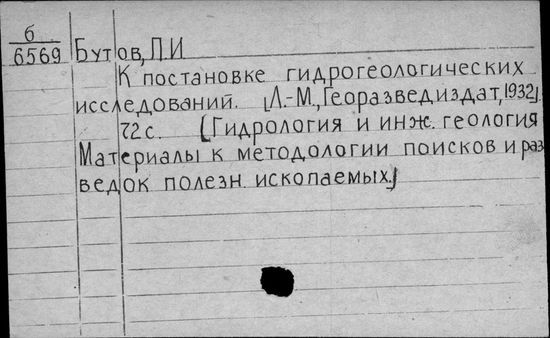 б
6569 Бутов, П.И
К постановке гидрогеологических
исследований. Л.-М., Георазведиздат, 1932.
72 с. (Гидрология и инж. геология
Материалы к методологии поисков и раз
ведок полезн. ископаемых.)